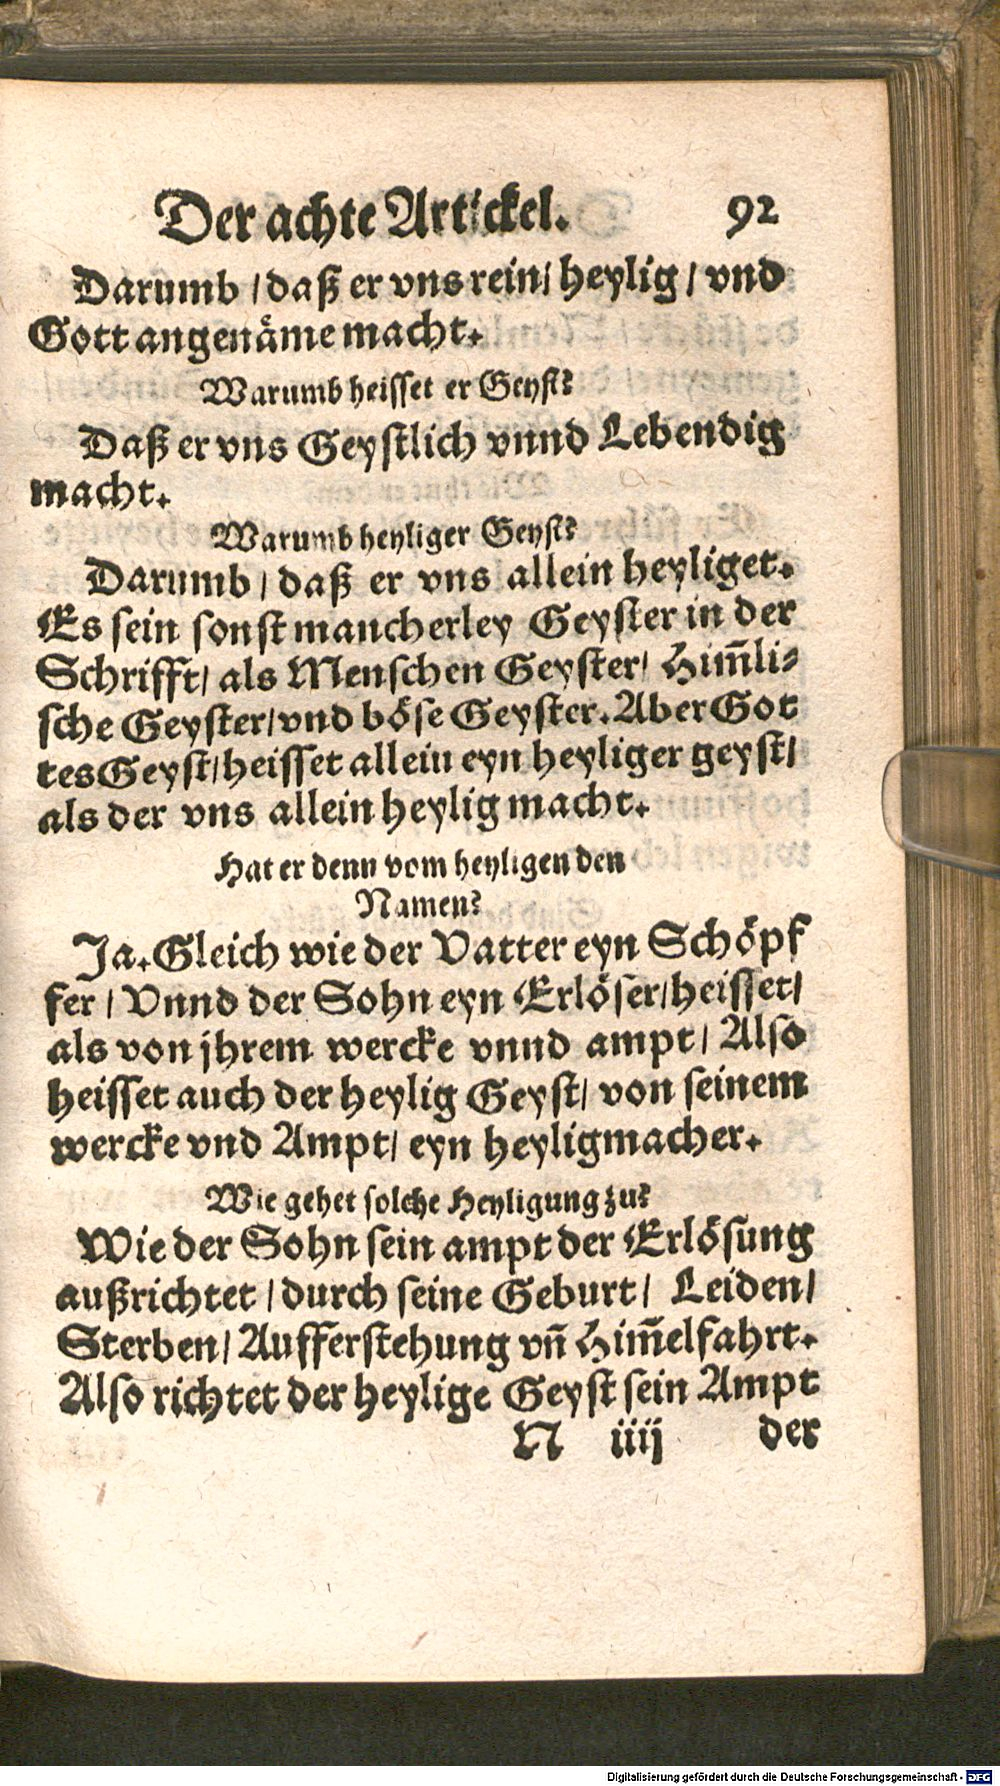 Der achte Artickel. 92
Darumb / daß er vns rein / heylig / vnd
Gott angenäme macht.
Warumb heisset er Geyst?
Daß er vns Geystlich vnnd Lebendig
macht.
Warumb heyliger Geyst?
Darumb / daß er vns allein heyliget.
Es sein sonst mancherley Geyster in der
Schrifft / als Menschen Geyster / Him̃li-
sche Geyster / vnd böse Geyster. Aber Got
tes Geyst / heisset allein eyn heyliger geyst /
als der vns allein heylig macht.
Hat er denn vom heyligen den
Namen?
Ja. Gleich wie der Vatter eyn Schöpf
fer / Vnnd der Sohn eyn Erlöser / heisset /
als von jhrem wercke vnnd ampt / Also
heisset auch der heylig Geyst / von seinem
wercke vnd Ampt / eyn heyligmacher.
Wie gehet solche Heyligung zu?
Wie der Sohn sein ampt der Erlösung
außrichtet / durch seine Geburt / Leiden /
Sterben / Aufferstehung vn̄ Him̃elfahrt.
Also richtet der heylige Geyst sein Ampt
N iiij der
Digitalisierung gefördert durch die Deutsche Forschungsgemeinschaft - DFG